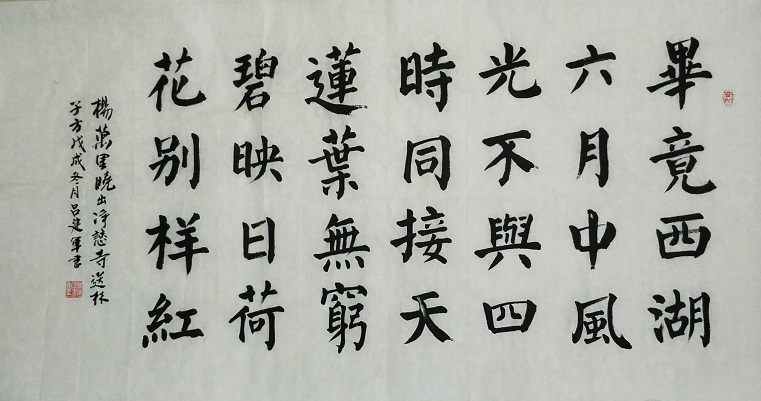 畢竟西湖
六月中風
光不與四
時同接天
蓮葉無窮
碧映日荷
花别样紅
楊萬里曉出淨慈寺送林
子方戊戌冬月吕建軍書